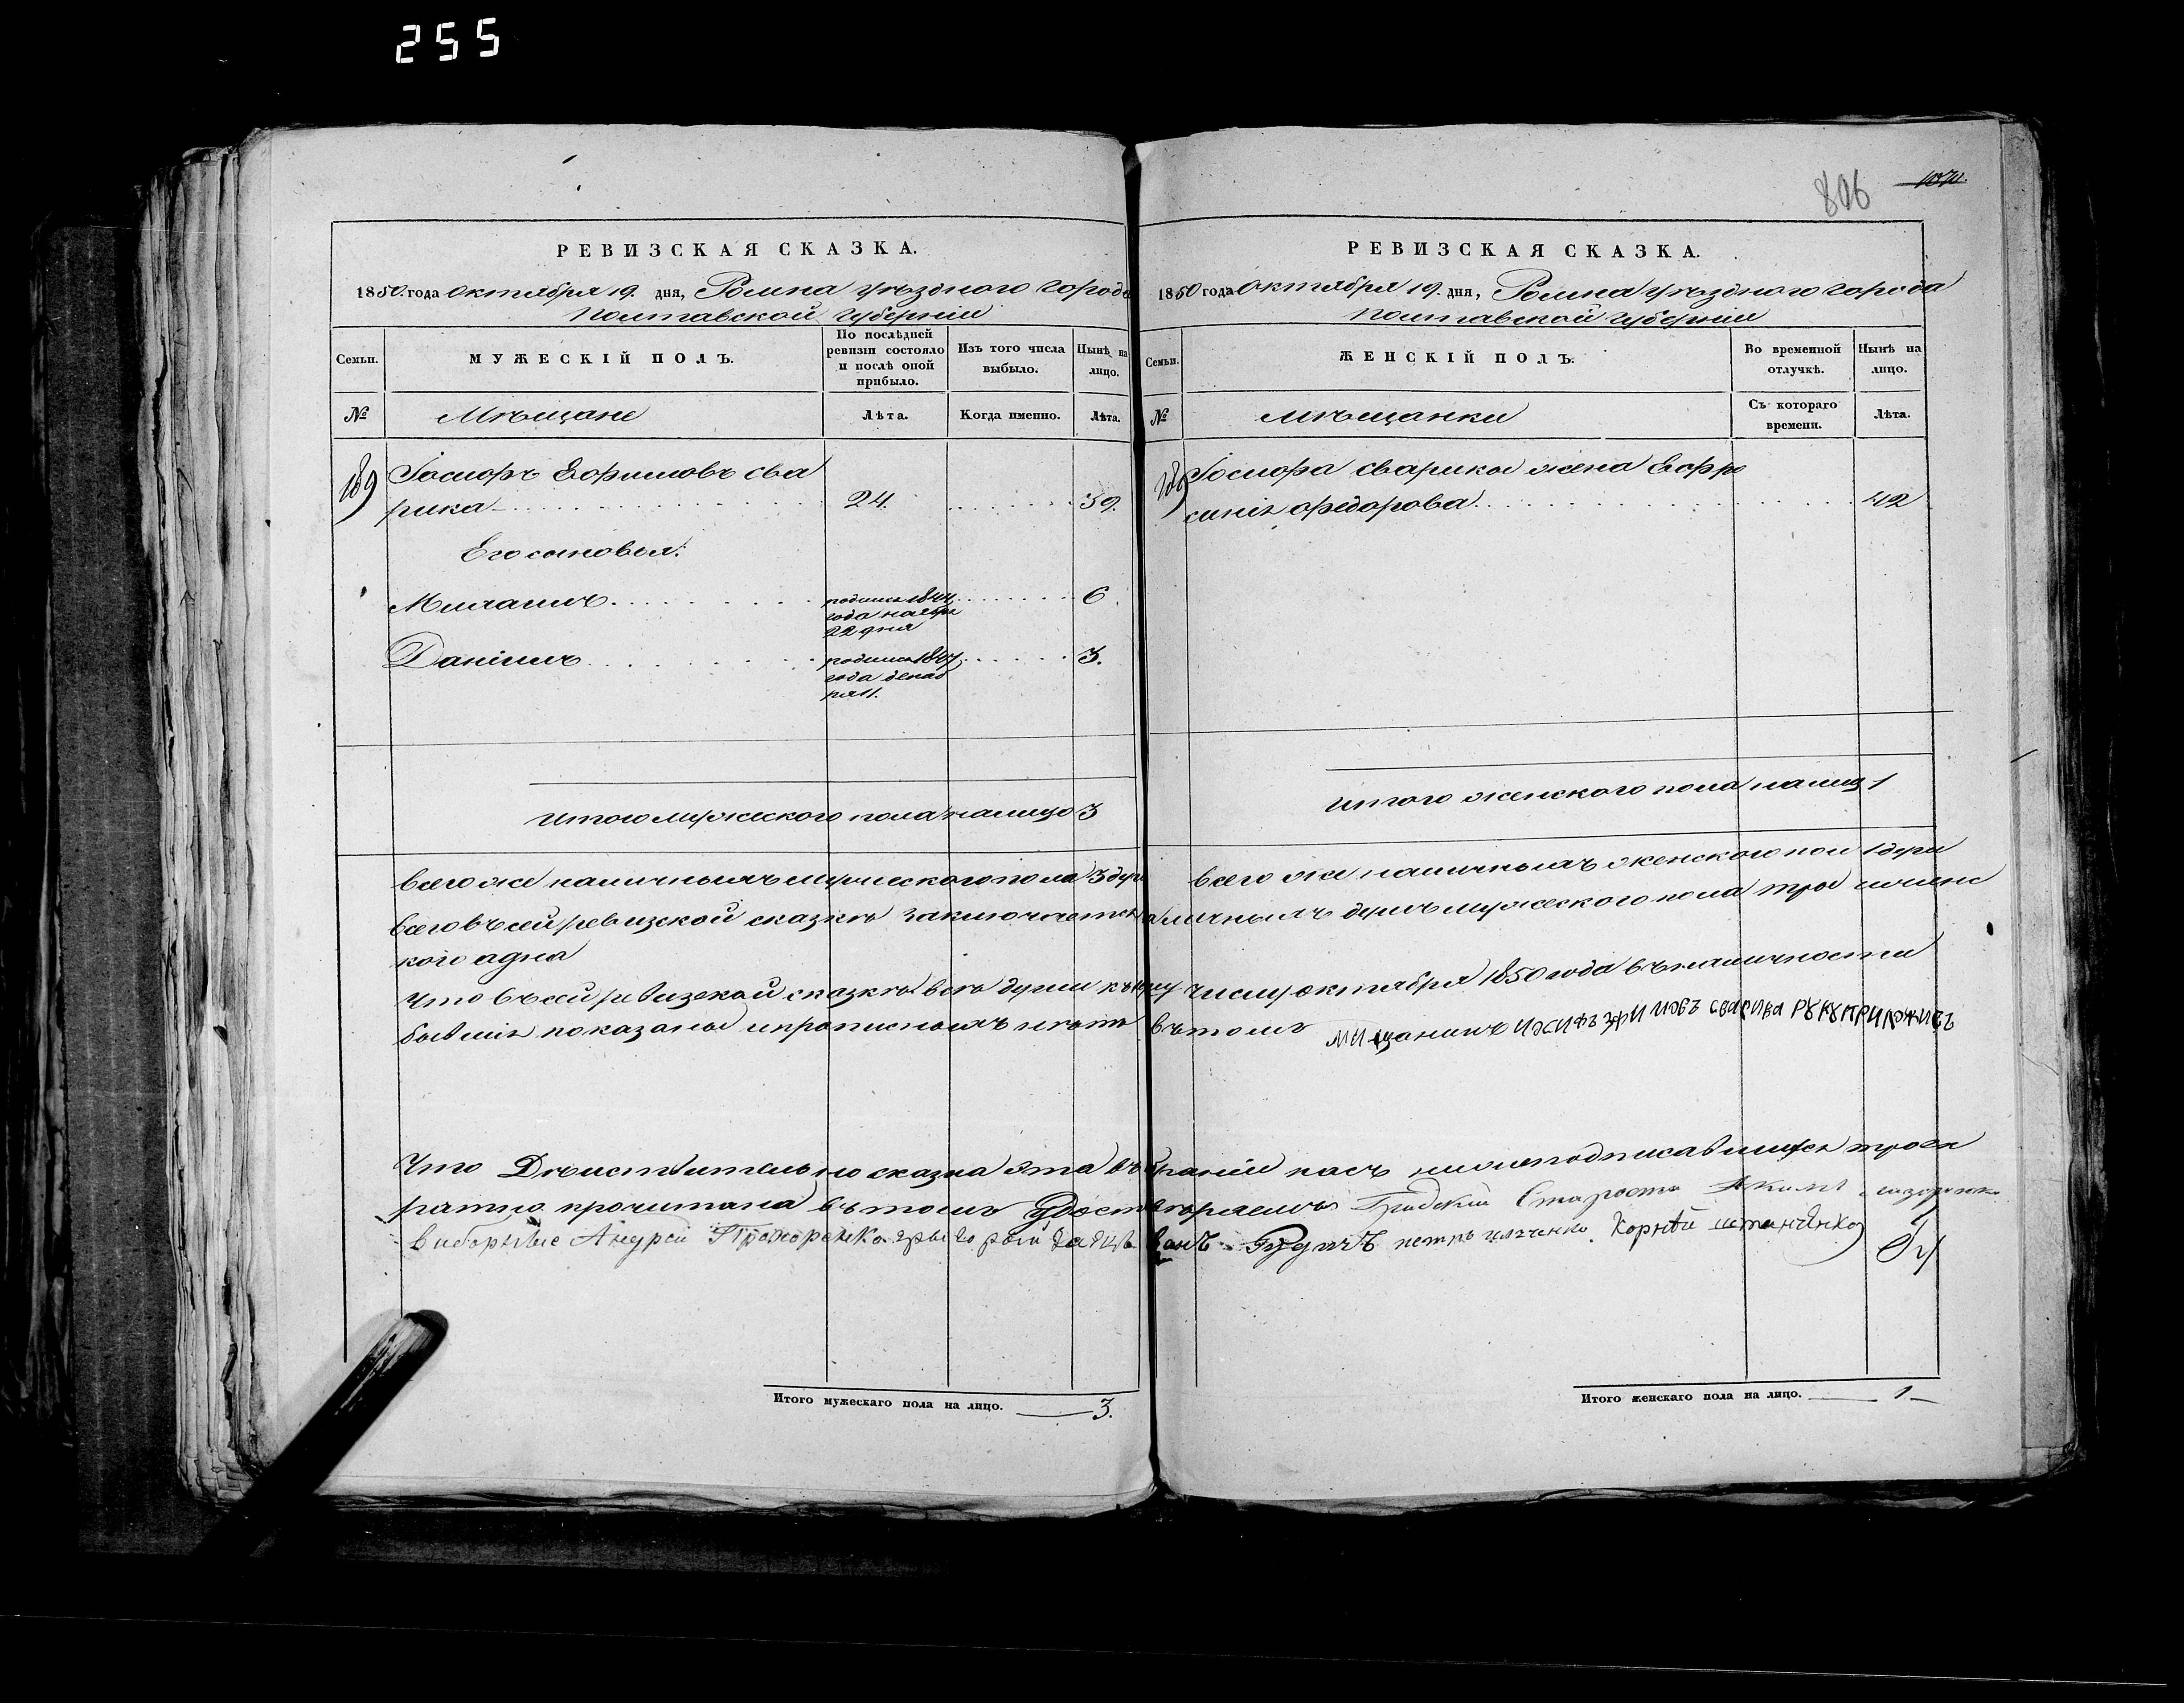 255
806
РЕВИЗСКАЯ СКАЗКА.
1850 года октября 19. дня, Ромна уѣзднаго города
Полтавской губерніи
Семьи. МУЖЕСКІЙ ПОЛЪ. По послѣдней ревизіи состояло и послѣ оной прибыло. Изъ того числа выбыло. Нынѣ на лицо.
№ Мѣщане Лѣта. Когда именно. Лѣта.
189 Іосифъ Ефимовъ Сва
рика 24. 39.
Его сыновья:
Михаилъ родился 1844 6
года ноября
22 дня
Даніилъ родился 1847 3.
года декаб
ря 11.
Итого мужеского пола налицо 3
РЕВИЗСКАЯ СКАЗКА.
1850 года Октября 19. дня, Ромна уѣзднаго города
Полтавской губерніи
Семьи. ЖЕНСКІЙ ПОЛЪ. Во временной отлучкѣ. Нынѣ на лицо.
№ Мѣщанки Съ котораго времени. Лѣта.
189 Іосифа Сварики жена Евфро
синія Федорова 42
итого женского пола налиц 1
всего же наличныхъ мужеского пола 3 душ
всего же наличныхъ женского пол 1 душа
всего въ сей ревизской сказкѣ заключается наличныхъ душъ мужеского пола три и женс
кого одна
Что въ сей ревизской сказкѣ всѣ души къ числу октября 1850 года въ наличности
бывшія показаны и прописныхъ нѣтъ въ томъ мищанинъ Сварика руку приложивъ
Что Дѣйствительно сказка эта въ насъ нижеподписавшихся троек
ратно прочитана въ томъ Удостовѣряемъ Градский Староста Акимъ
Виборные Андрей Прохоренко петръ Корнѣй
Итого мужескаго пола на лицо. 3.
Итого женскаго пола на лицо. 1